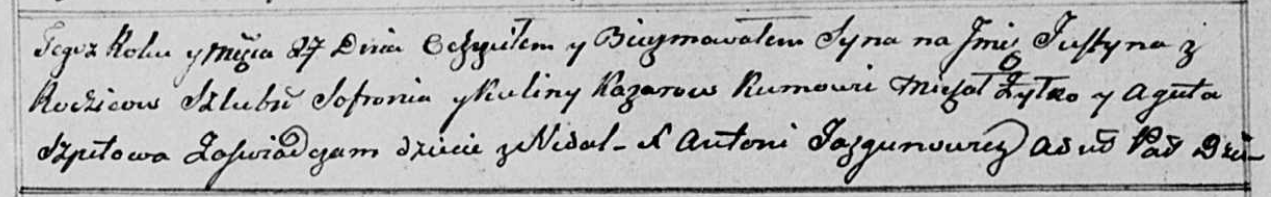 Tegoż Roku y Mẜca 27 Dnia Ochrzciłem y Birzmowałem Syna na Jmię Justyna z
Rodzicow Szlubn Sofronia y Kuliny Kazarow Kumowi Michał Żytko y Aguta
Szpitowa Zaswiadczam dziecie z Nidal - X Antoni Jazgunowicz